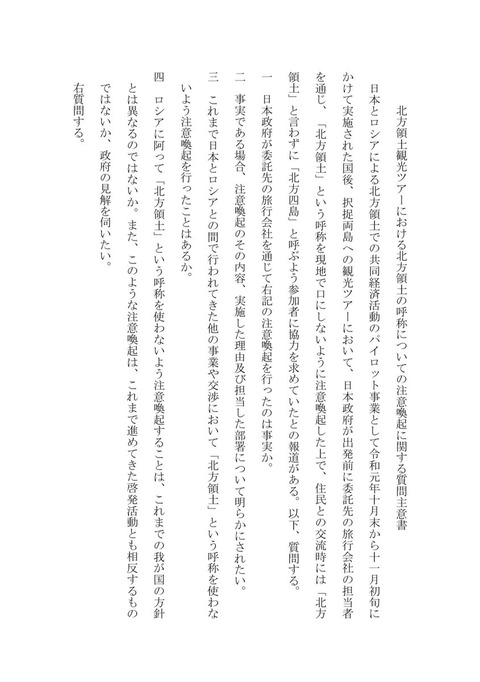 北方領土観光ツアーにおける北方領土の呼称についての注意喚起に関する質問主意書
日本とロシアによる北方領土での共同経済活動のパイロット事業として令和元年十月末から十一月初旬に
かけて実施された国後、択捉両島への観光ツアーにおいて、日本政府が出発前に委託先の旅行会社の担当者
を通じ、「北方領土」という呼称を現地で口にしないように注意喚起した上で、住民との交流時には「北方
領土」と言わずに「北方四島」と呼ぶよう参加者に協力を求めていたとの報道がある。以下、質問する。
一 日本政府が委託先の旅行会社を通じて右記の注意喚起を行ったのは事実か。
二 事実である場合、注意喚起のその内容、実施した理由及び担当した部署について明らかにされたい。
三 これまで日本とロシアとの間で行われてきた他の事業や交渉において「北方領土」という呼称を使わな
いよう注意喚起を行ったことはあるか。
四 ロシアに阿って「北方領土」という呼称を使わないよう注意喚起することは、これまでの我が国の方針
とは異なるのではないか。また、このような注意喚起は、これまで進めてきた啓発活動とも相反するもの
ではないか、政府の見解を伺いたい。
右質問する。